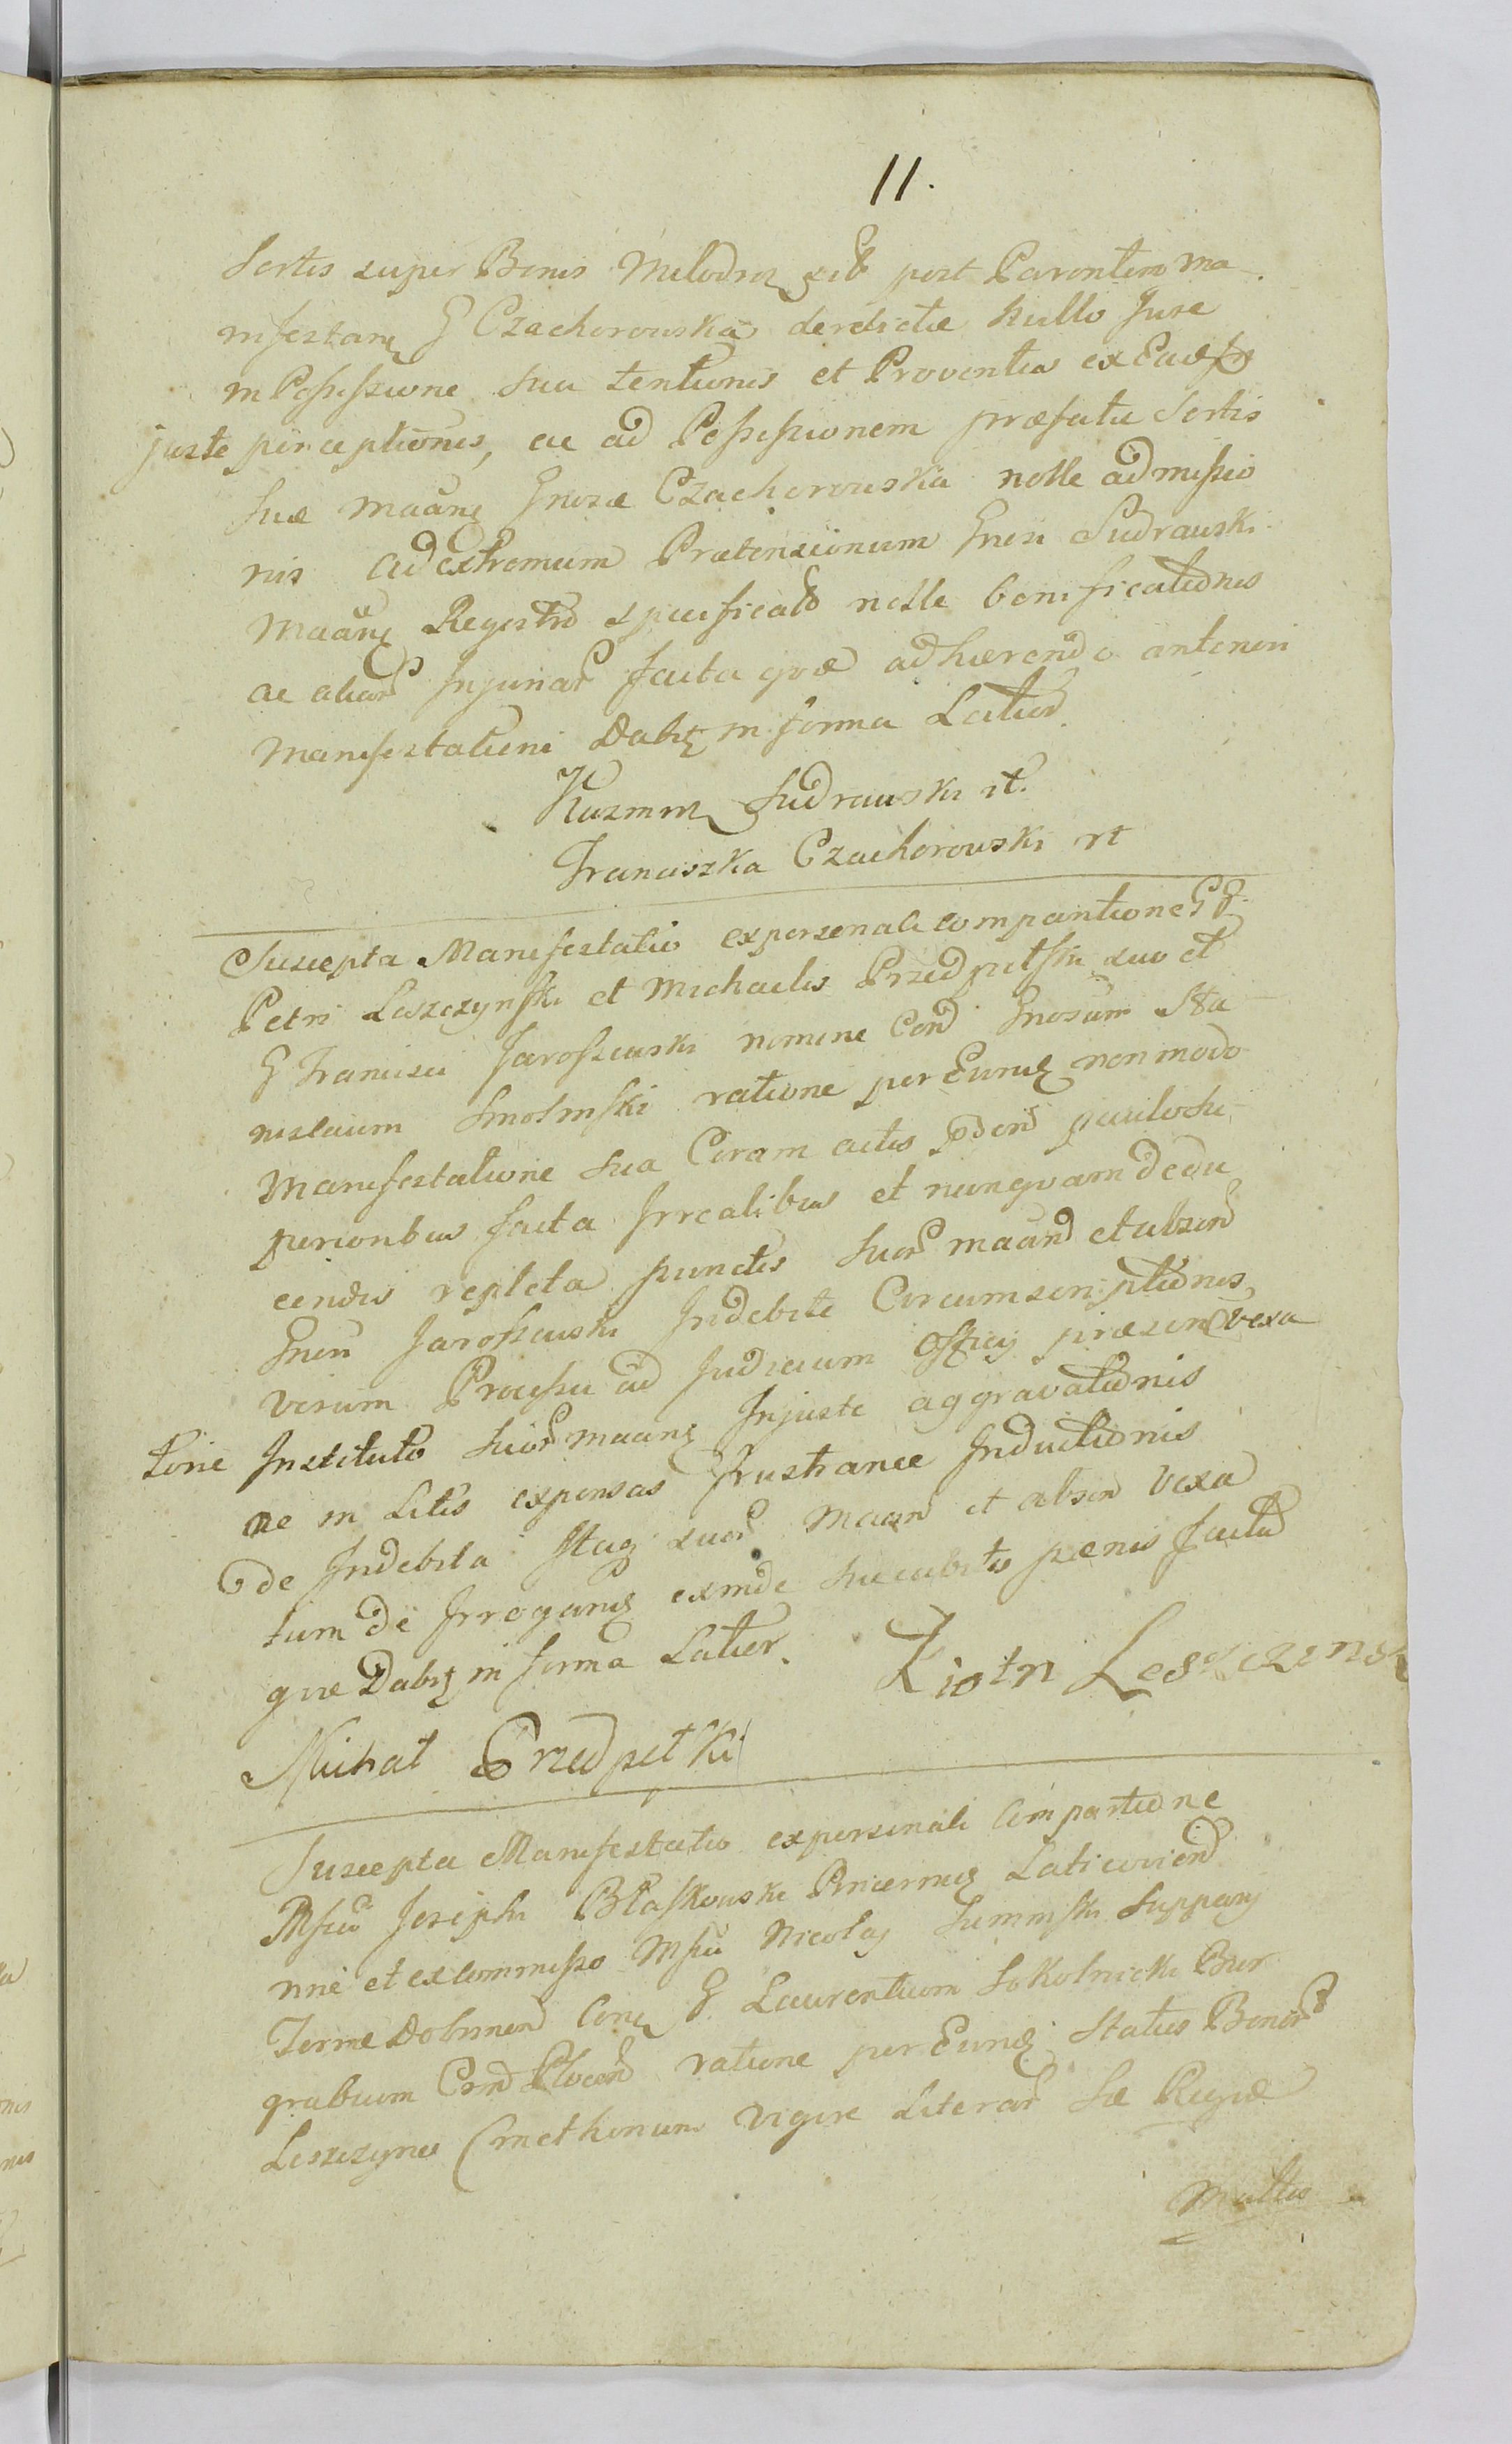 11.
Sortis super Bonis Milodroz sib post Parentem ma
nifestan G Czachorouska derelictæ nullo Jure
in Possessione sua tentionis et Proventus ex Eade in
juste perceptionis, ac ad Possessionem præfatæ Sortis
suæ maane Gnosæ Czachorouska nolle admissio
nis ad extremum Prætensionum Gnosi Sudrauski
maane Regestro specificato nolle bonificationis
ac aliar Injuriar facta qvæ adhærendo anteriori
Manifestationi Dabit in forma Latior.
Kazmirz Sudrauski rt.
Franciszka Czachorouski rt
Suscepta Manifestatio ex personali comparitione GG
Petri Leszczynski et Michaelis Przedpelski suo et
G Francisci Jaroszeuski nomine Con Gnosum Sta
nislaum Smolinski ratione per Eund non modo
Manifestatione sua Coram actis pden paulo su
perioribus facta Irrealibus et nunqvam dedu
cendis repleta punctis suor maand et absen
Gnosi Jaroszeuski Indebite Circumscriptionis,
verum Processu ad Judicium Officij præsen vexa
torie Instituto suor maane Injuste aggravationis
ac in Litis expensas frustranee Inductionis
de Indebita Itaq suor maan et absen vexa
tum de Irrogans exinde succubitis pænis facta
que Dabit in forma Latior.
Piotr Leszczensk
Michał Przedpełki
Suscepta Manifestatio ex personali Comparitione
Mfici Josephi Błaskouski Pincernæ Laticovien
nne et ex commisso Mfici Nicolaj Suminski Supparij
Terræ Dobrinen Con G. Laurentium Sokolnicki Bur
grabium Cren Plocen ratione per Eund Status Bonor
Leszczyno Cmethonum vigore Literar Sæ Regiæ
Mattis